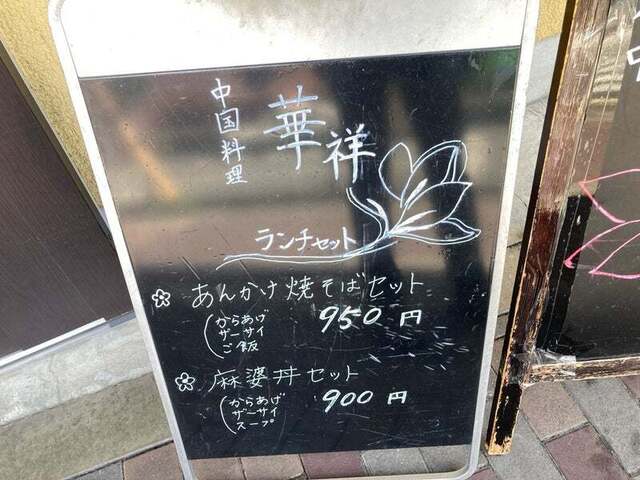 中国料理
華祥
ランチセット
あんかけ焼そばセット
(からあげ
ザーサイ
ご飯
950円
麻婆丼セット
(からあげ
ザーサイ
スープ
900円